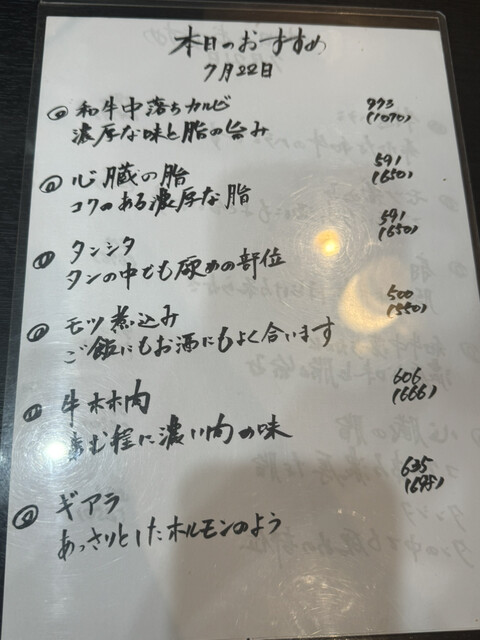 本日のおすすめ
7月22日
和牛中落ちカルビ 973
(1070)
濃厚な味と脂の旨み
心臓の脂 591
(650)
コクのある濃厚な脂
タンシタ 591
(650)
タンの中でも硬めの部位
モツ煮込み 500
(550)
ご飯にもお酒にもよく合います
牛ホホ肉 606
(666)
噛む程に濃い肉の味
ギアラ 635
(698)
あっさりとしたホルモンのよう